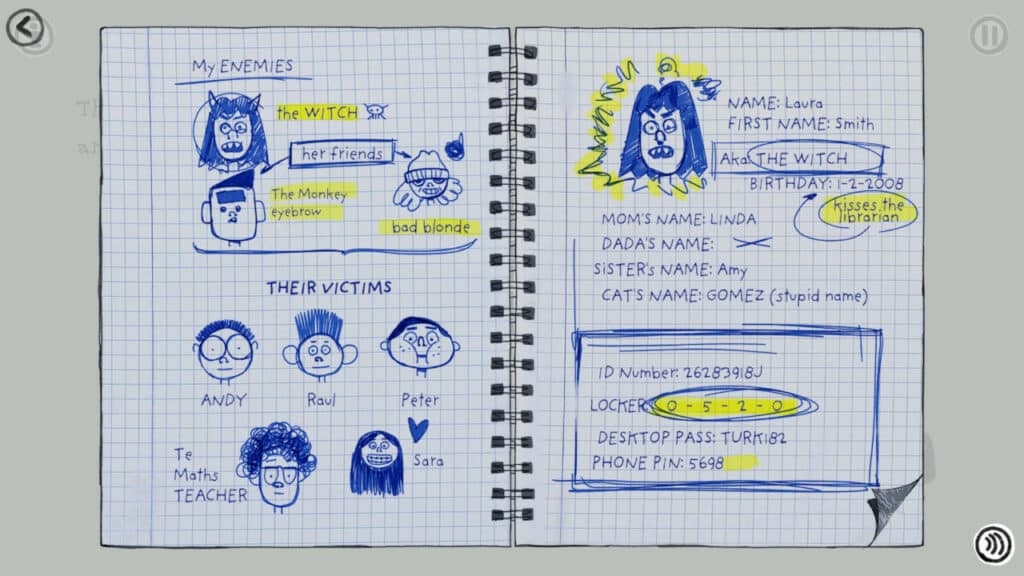 My ENEMIES
the WITCH
her friends
The Monkey
eyebrow
bad blonde
THEIR VICTIMS
ANDY
Raul
Peter
Te
Maths
TEACHER
Sara
NAME: Laura
FIRST NAME: Smith
Aka THE WITCH
BIRTHDAY: 1-2-2008
kisses the
librarian
MOM'S NAME: LINDA
DADA'S NAME:
SiSTER's NAME: Amy
CAT'S NAME: GOMEZ (stupid name)
ID Number: 26283918J
LOCKER 0-5-2-0
DESKTOP PASS: TURK182
PHONE PIN: 5698